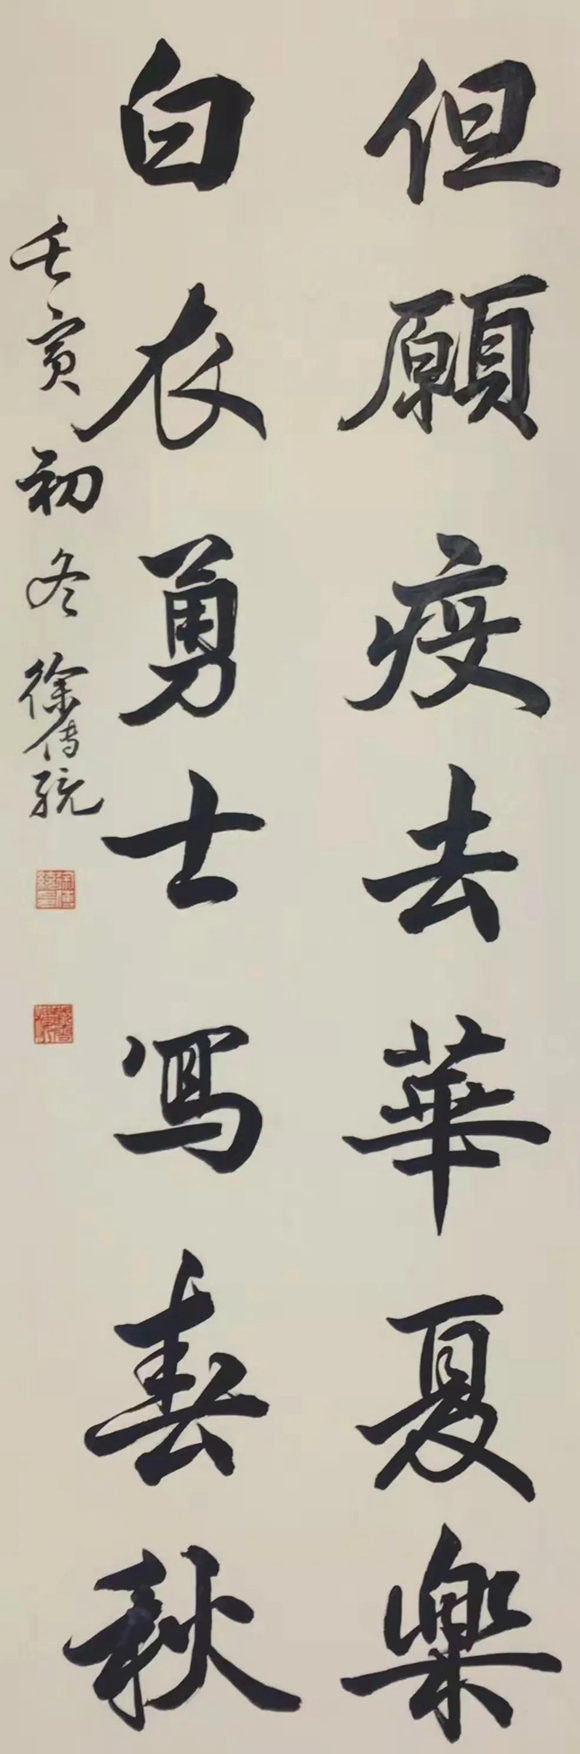 但願疫去華夏樂
白衣勇士寫春秋
壬寅初冬徐传统